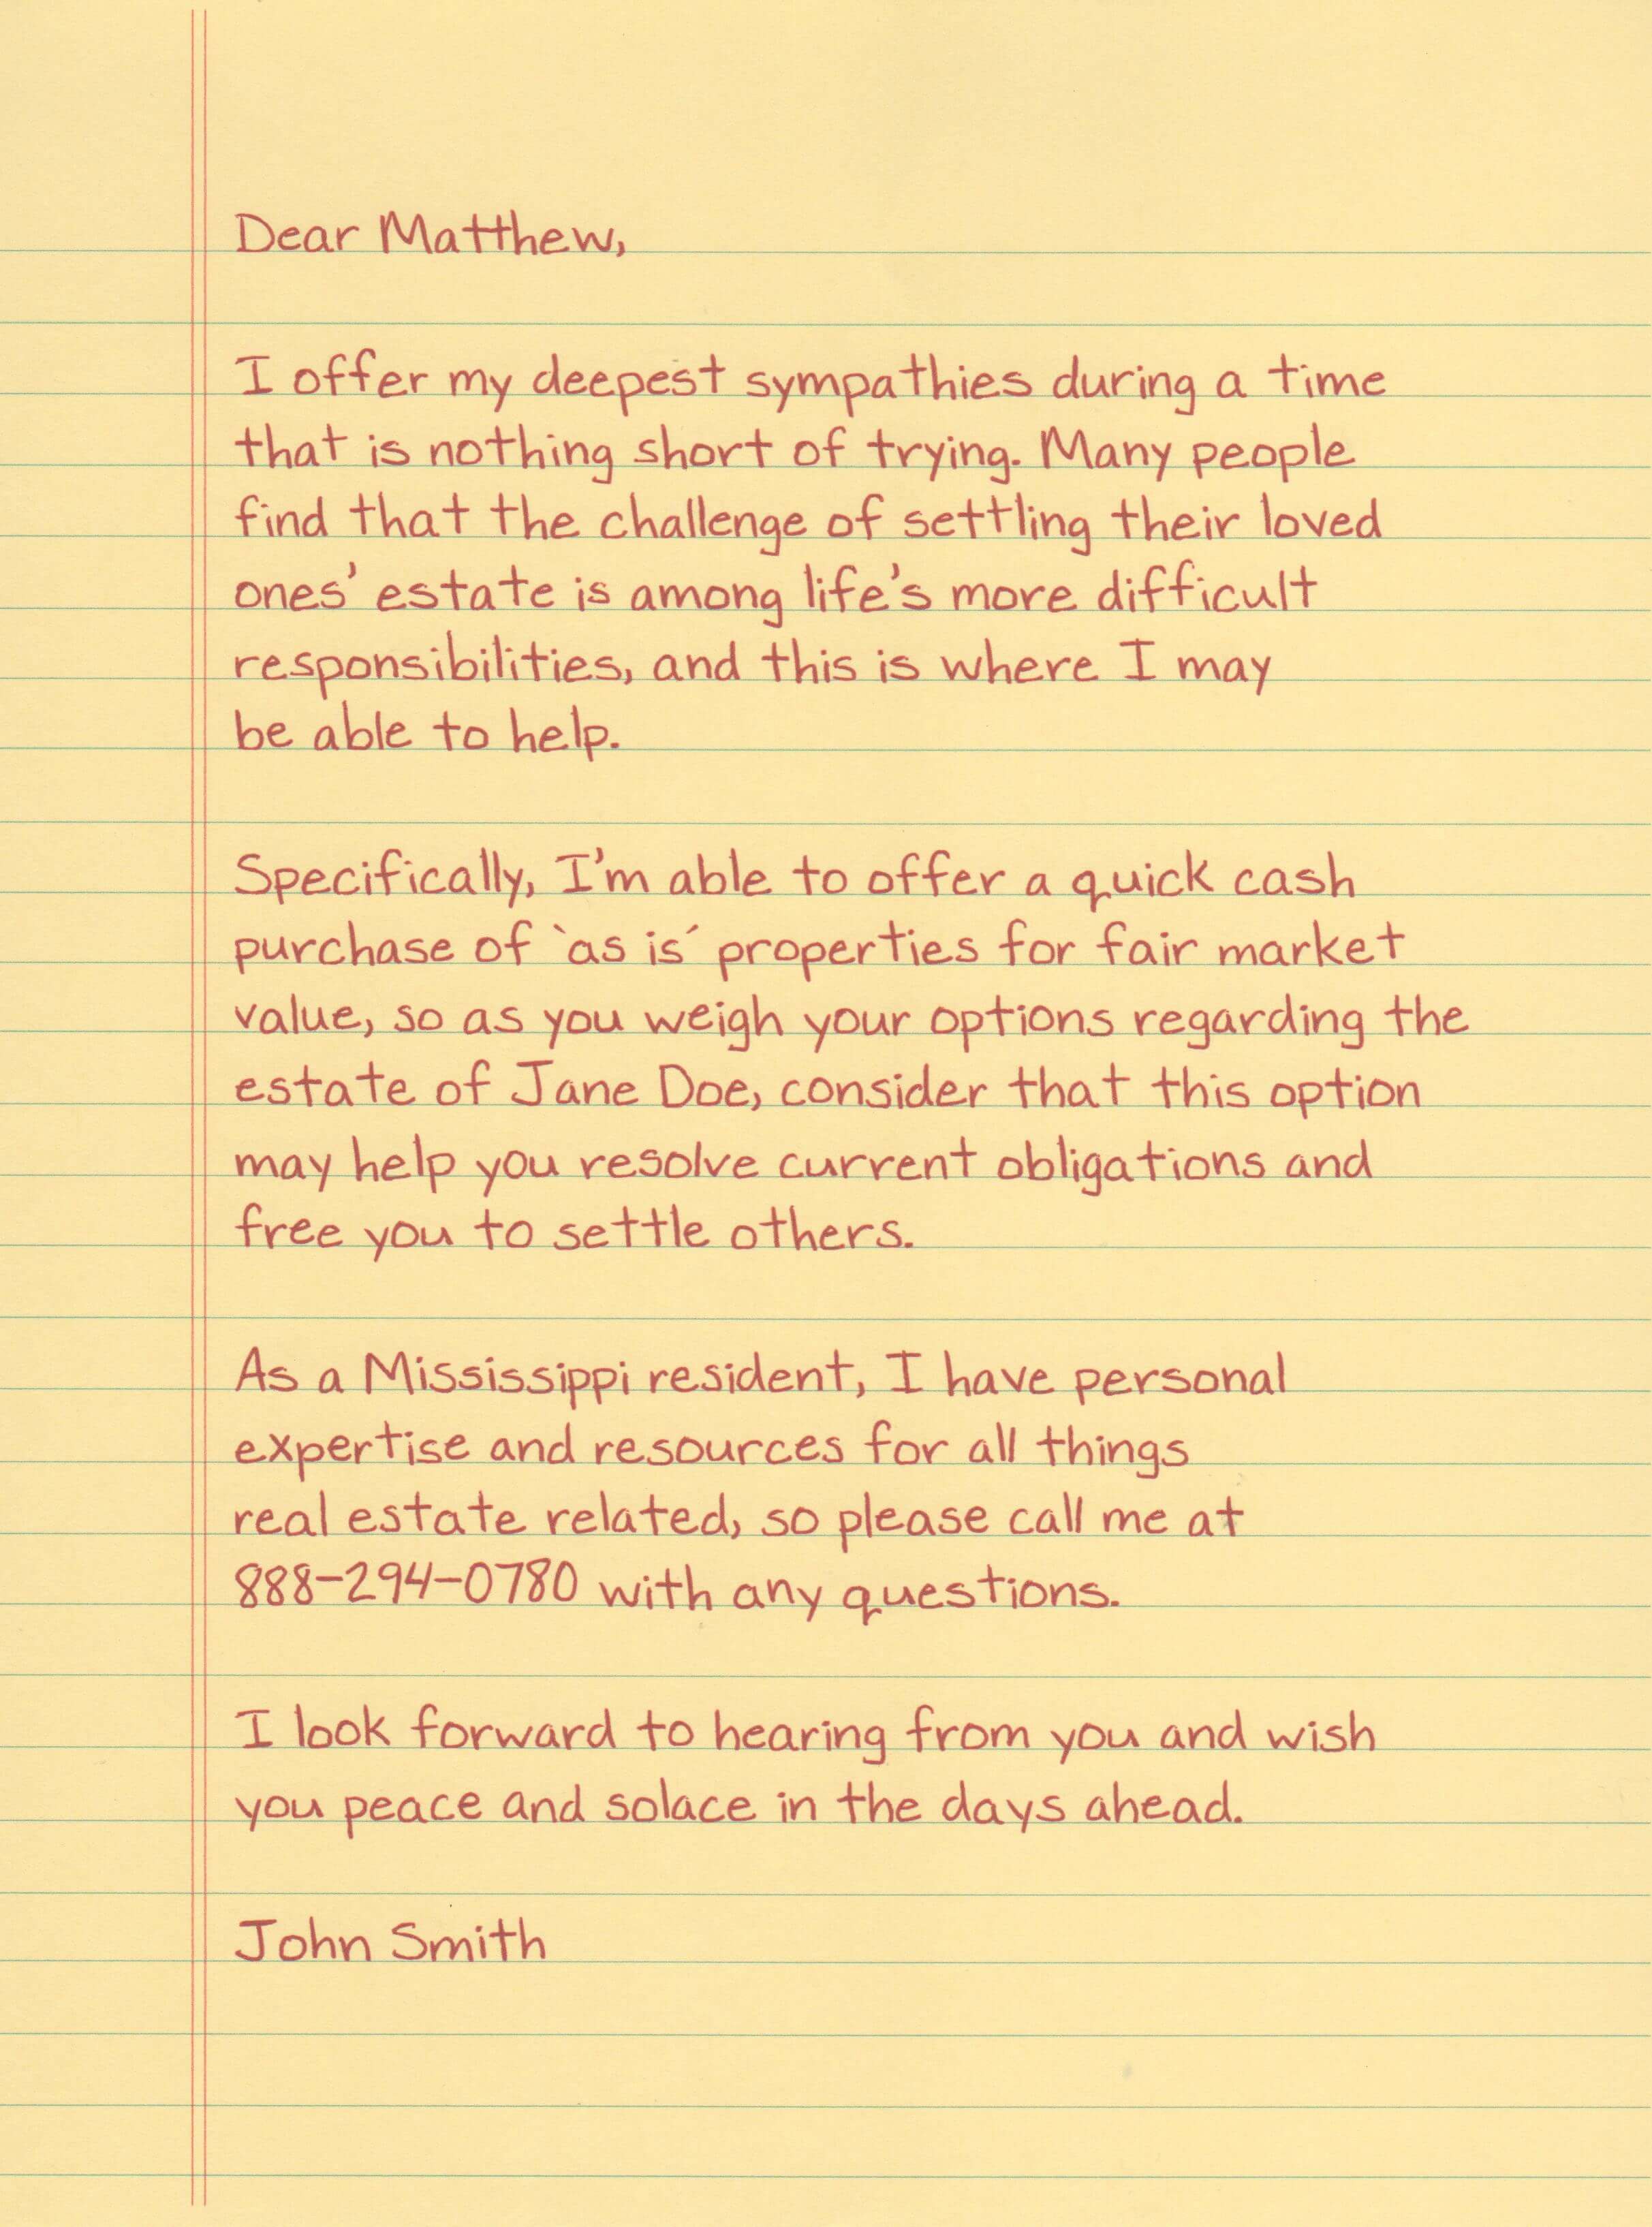 Dear Matthew,
I offer my deepest sympathies during a time
that is nothing short of trying. Many people
find that the challenge of settling their loved
ones' estate is among life's more difficult
responsibilities, and this is where I may
be able to help.
Specifically, I'm able to offer a quick cash
purchase of `as is´ properties for fair market
value, so as you weigh your options regarding the
estate of Jane Doe, consider that this option
may help you resolve current obligations and
free you to settle others.
As a Mississippi resident, I have personal
expertise and resources for all things
real estate related, so please call me at
888-294-0780 with any questions.
I look forward to hearing from you and wish
you peace and solace in the days ahead.
John Smith